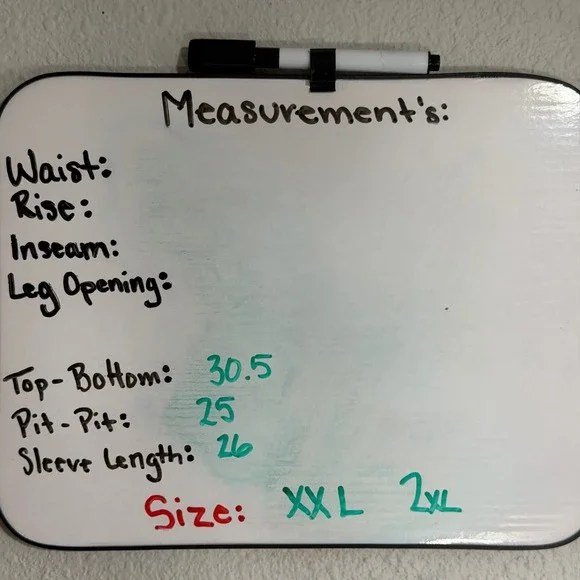 Measurement's:
Waist:
Rise:
Inseam:
Leg Opening:
Top-Bottom: 30.5
Pit-Pit: 25
Sleeve Length: 26
Size: XXL 2XL